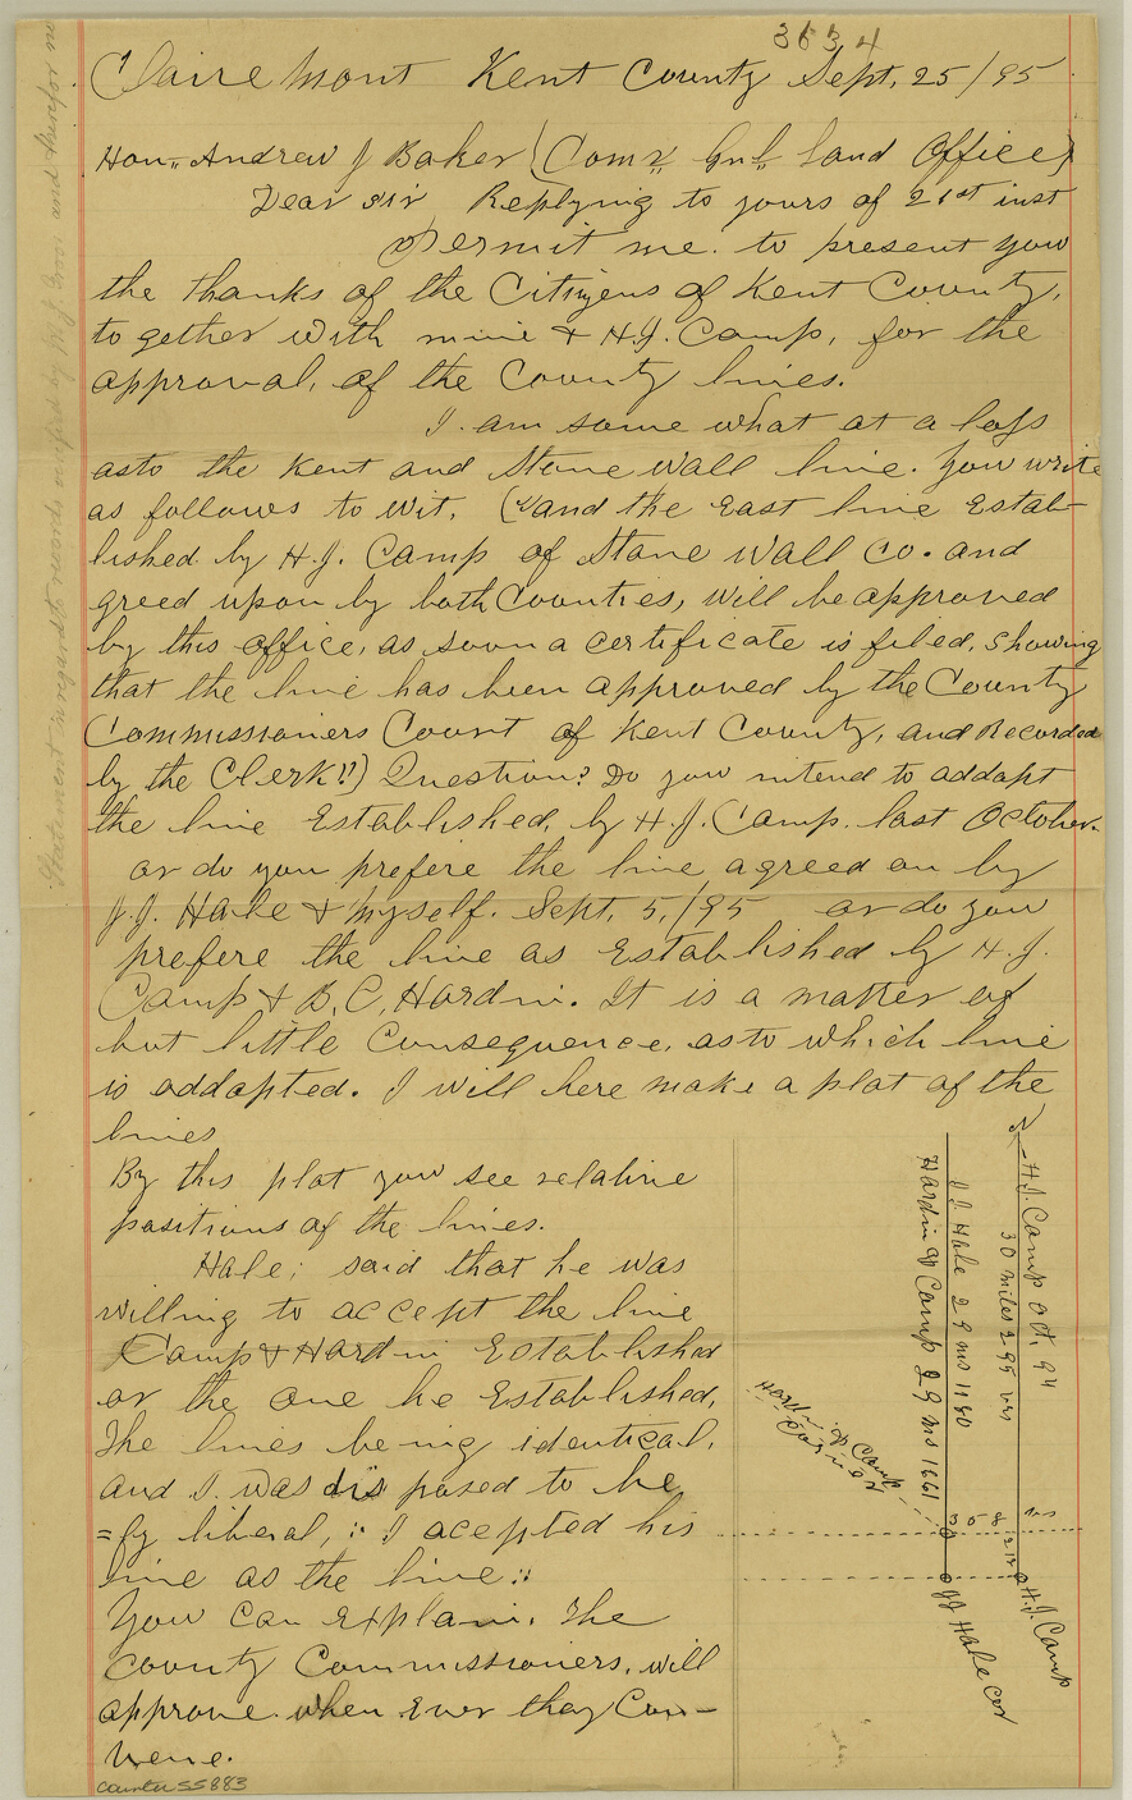 3634
Claire Mont Kent County Sept. 25/95
Hon. Andrew J Baker (Comr. Gnl. Land Office)
Dear sir Replying to yours of 21st inst
Permit me. to present you
the thanks of the Citizens of Kent County,
to gether with mine & H.J. Camp, for the
approval, of the County lines.
I. am some what at a loss
asto the Kent and Stone Wall line. You write
as follows to wit, ("and the East line Estab-
lished by H.J. Camp of Stone Wall Co. and
greed upon by both Counties, will be approved
by this office, as soon a certificate is filed, showing
that the line has been approved by the County
Commissioners Court of Kent County, and Recorded
by the Clerk!!) Question? Do you intend to addapt
the line Established, by H.J. Camp. last October.
or do you prefere the line agreed on by
J.J. Hale & myself. Sept, 5,/95 or do you
prefere the line as Established by H.J.
Camp & B.C. Hardin. It is a matter of
but little Consequence, asto which line
is addapted. I will here make a plat of the
lines
By this plat you see relative
positions of the lines.
Hale; said that he was
willing to accept the line
Camp & Hardin Established
or the one he Established,
The lines being identical,
and I. was dis posed to be
=ly liberal, :: I acepted his
line as the line ::
You can Explain. The
County Commissioners, will
approve. when Ever they Con-
vene.
H.J. Camp Oct. 94
30 miles 295 vrs
J J Hale 29 ms 1180
Hardin & Camp 29 ms 1661
Hardin & Camp
Corner
358 vrs
212
H.J. Camp
JJ Hale cor
counter 55883